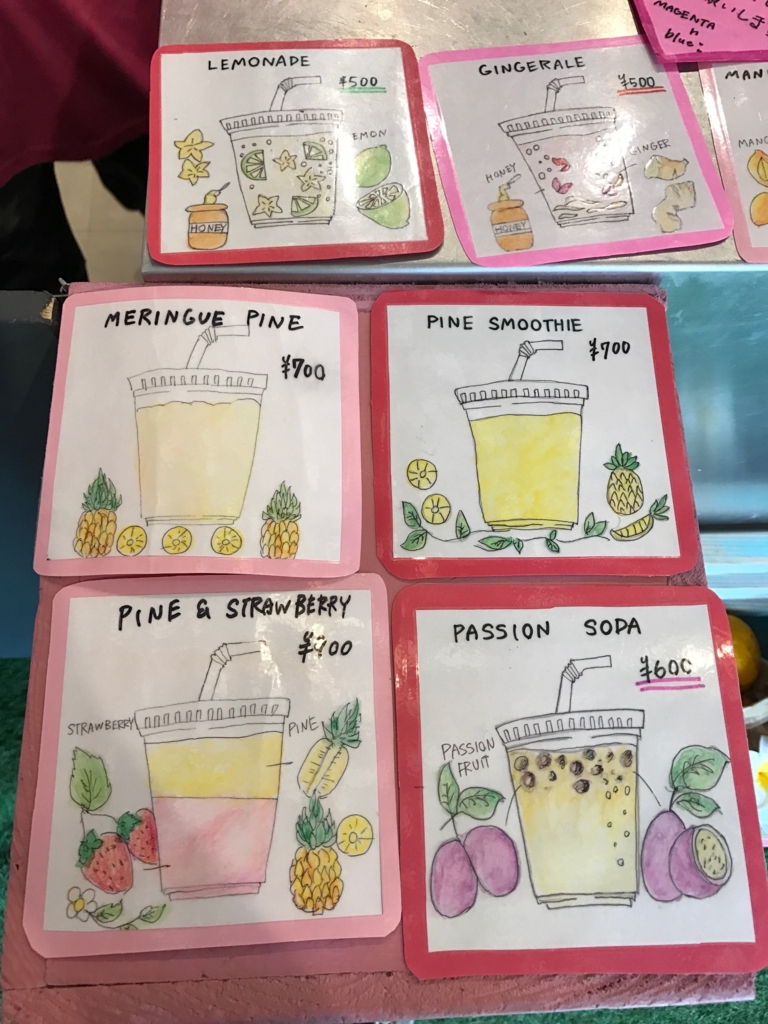 MAGENTA
n
blue:
LEMONADE
¥500
LEMON
HONEY
GINGERALE
¥500
HONEY
GINGER
HONEY
MERINGUE PINE
¥700
PINE SMOOTHIE
¥700
PINE & STRAWBERRY
STRAWBERRY
PINE
PASSION SODA
¥600
PASSION
FRUIT